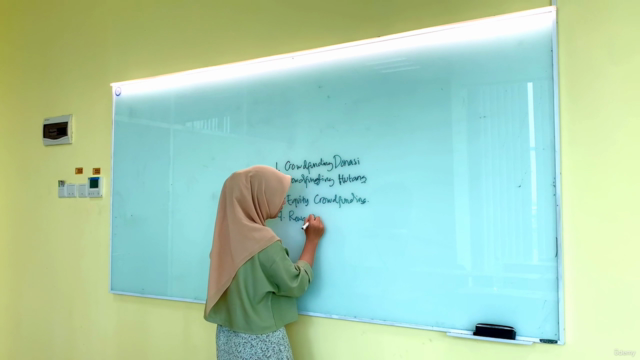 1. Crowdfunding Donasi
Crowdfunding Hutang
Equity Crowdfunding
4. Rew
ûdemy